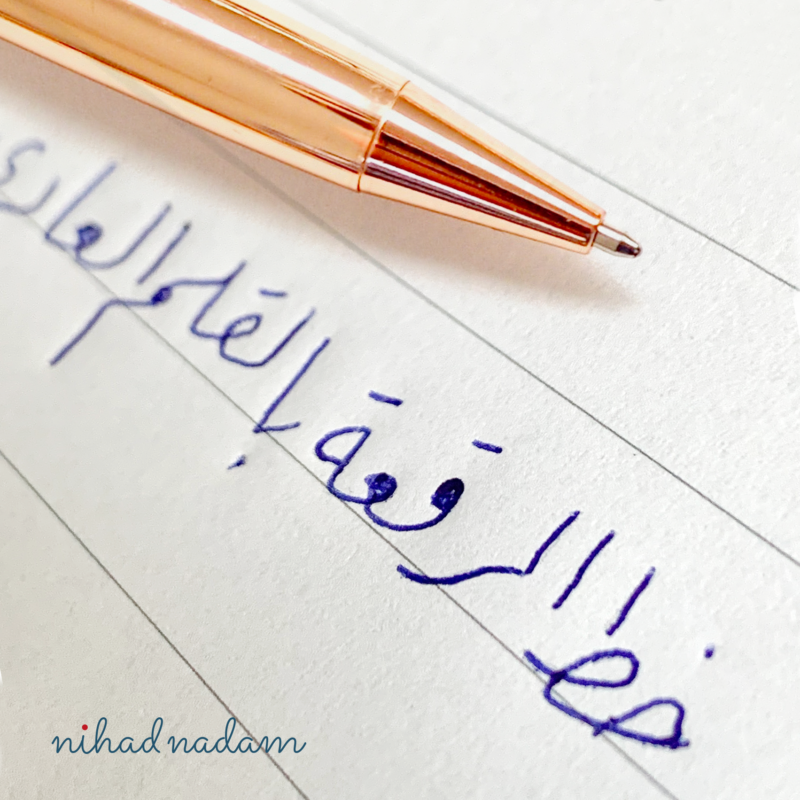 خط الرقعة بالقلم العادي
nihad nadam